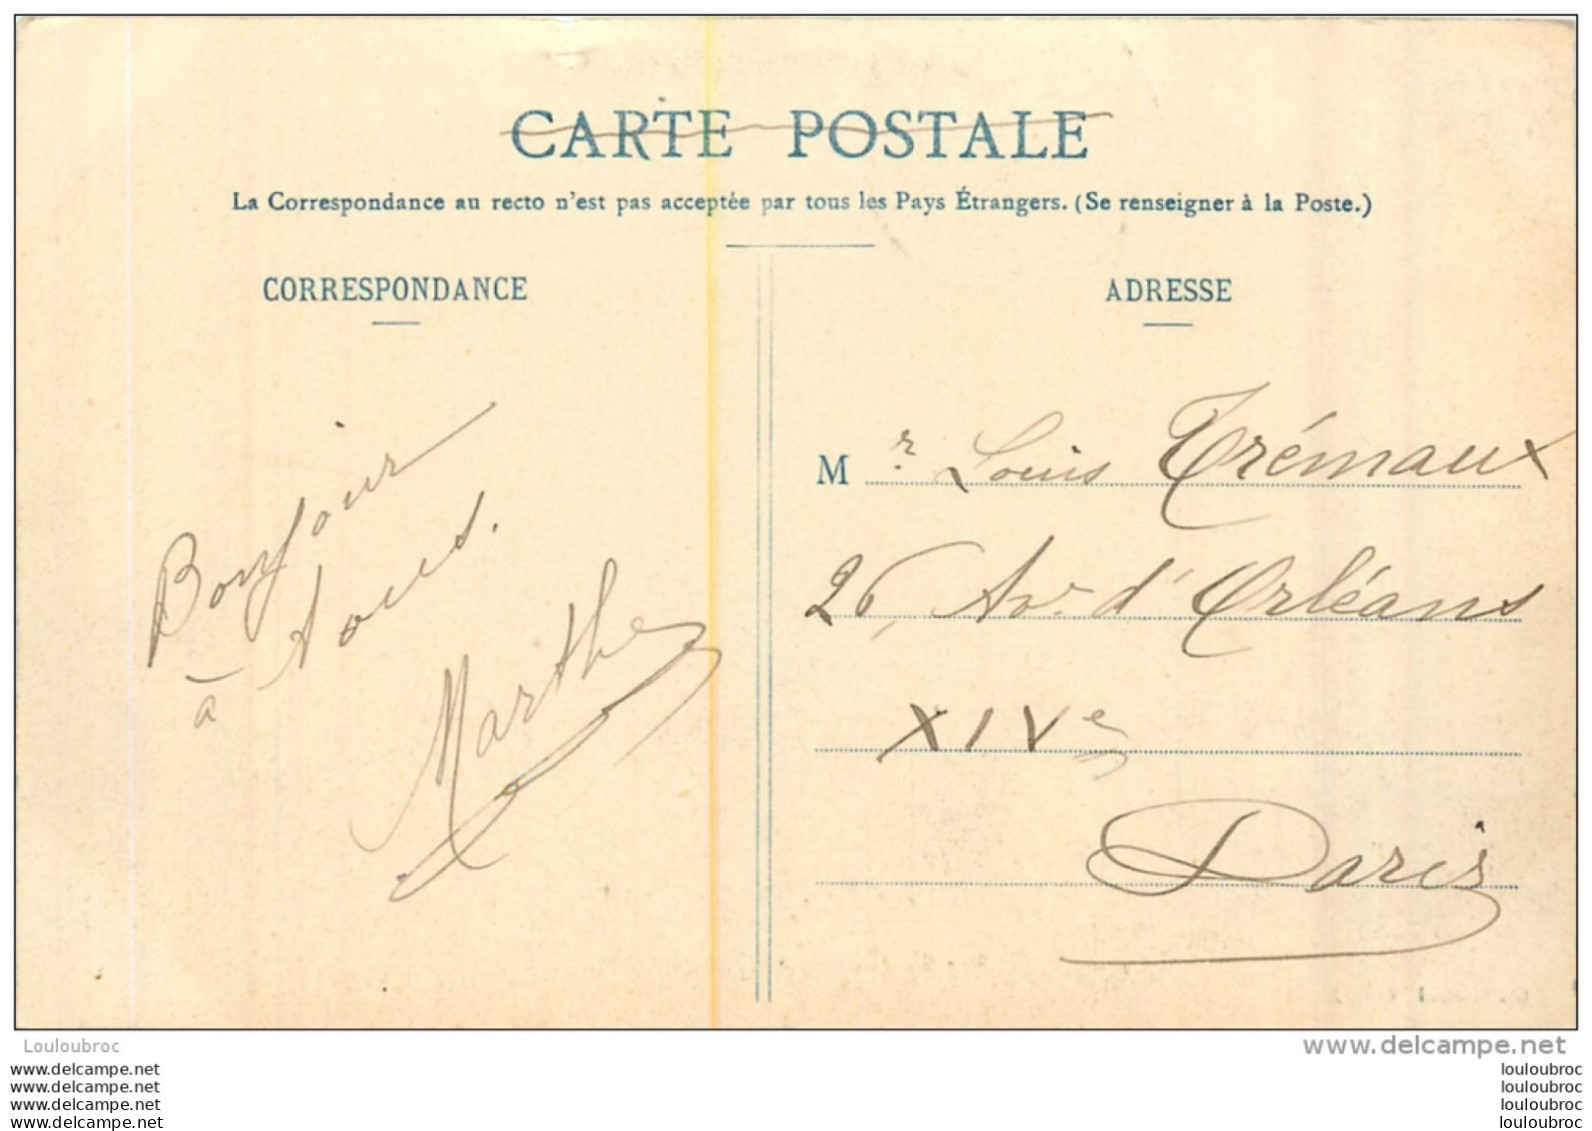 CARTE POSTALE
La Correspondance au recto n'est pas acceptée par tous les Pays Étrangers. (Se renseigner à la Poste.)
CORRESPONDANCE
Bonjour
à tous.
Marthe
ADRESSE
Mr Louis Trémaux
26, Av. d'Orléans
XIVe
Paris
Louloubroc
www.delcampe.net
www.delcampe.net
www.delcampe.net
www.delcampe.net
www.delcampe.net
louloubroc
louloubroc
louloubroc
louloubroc